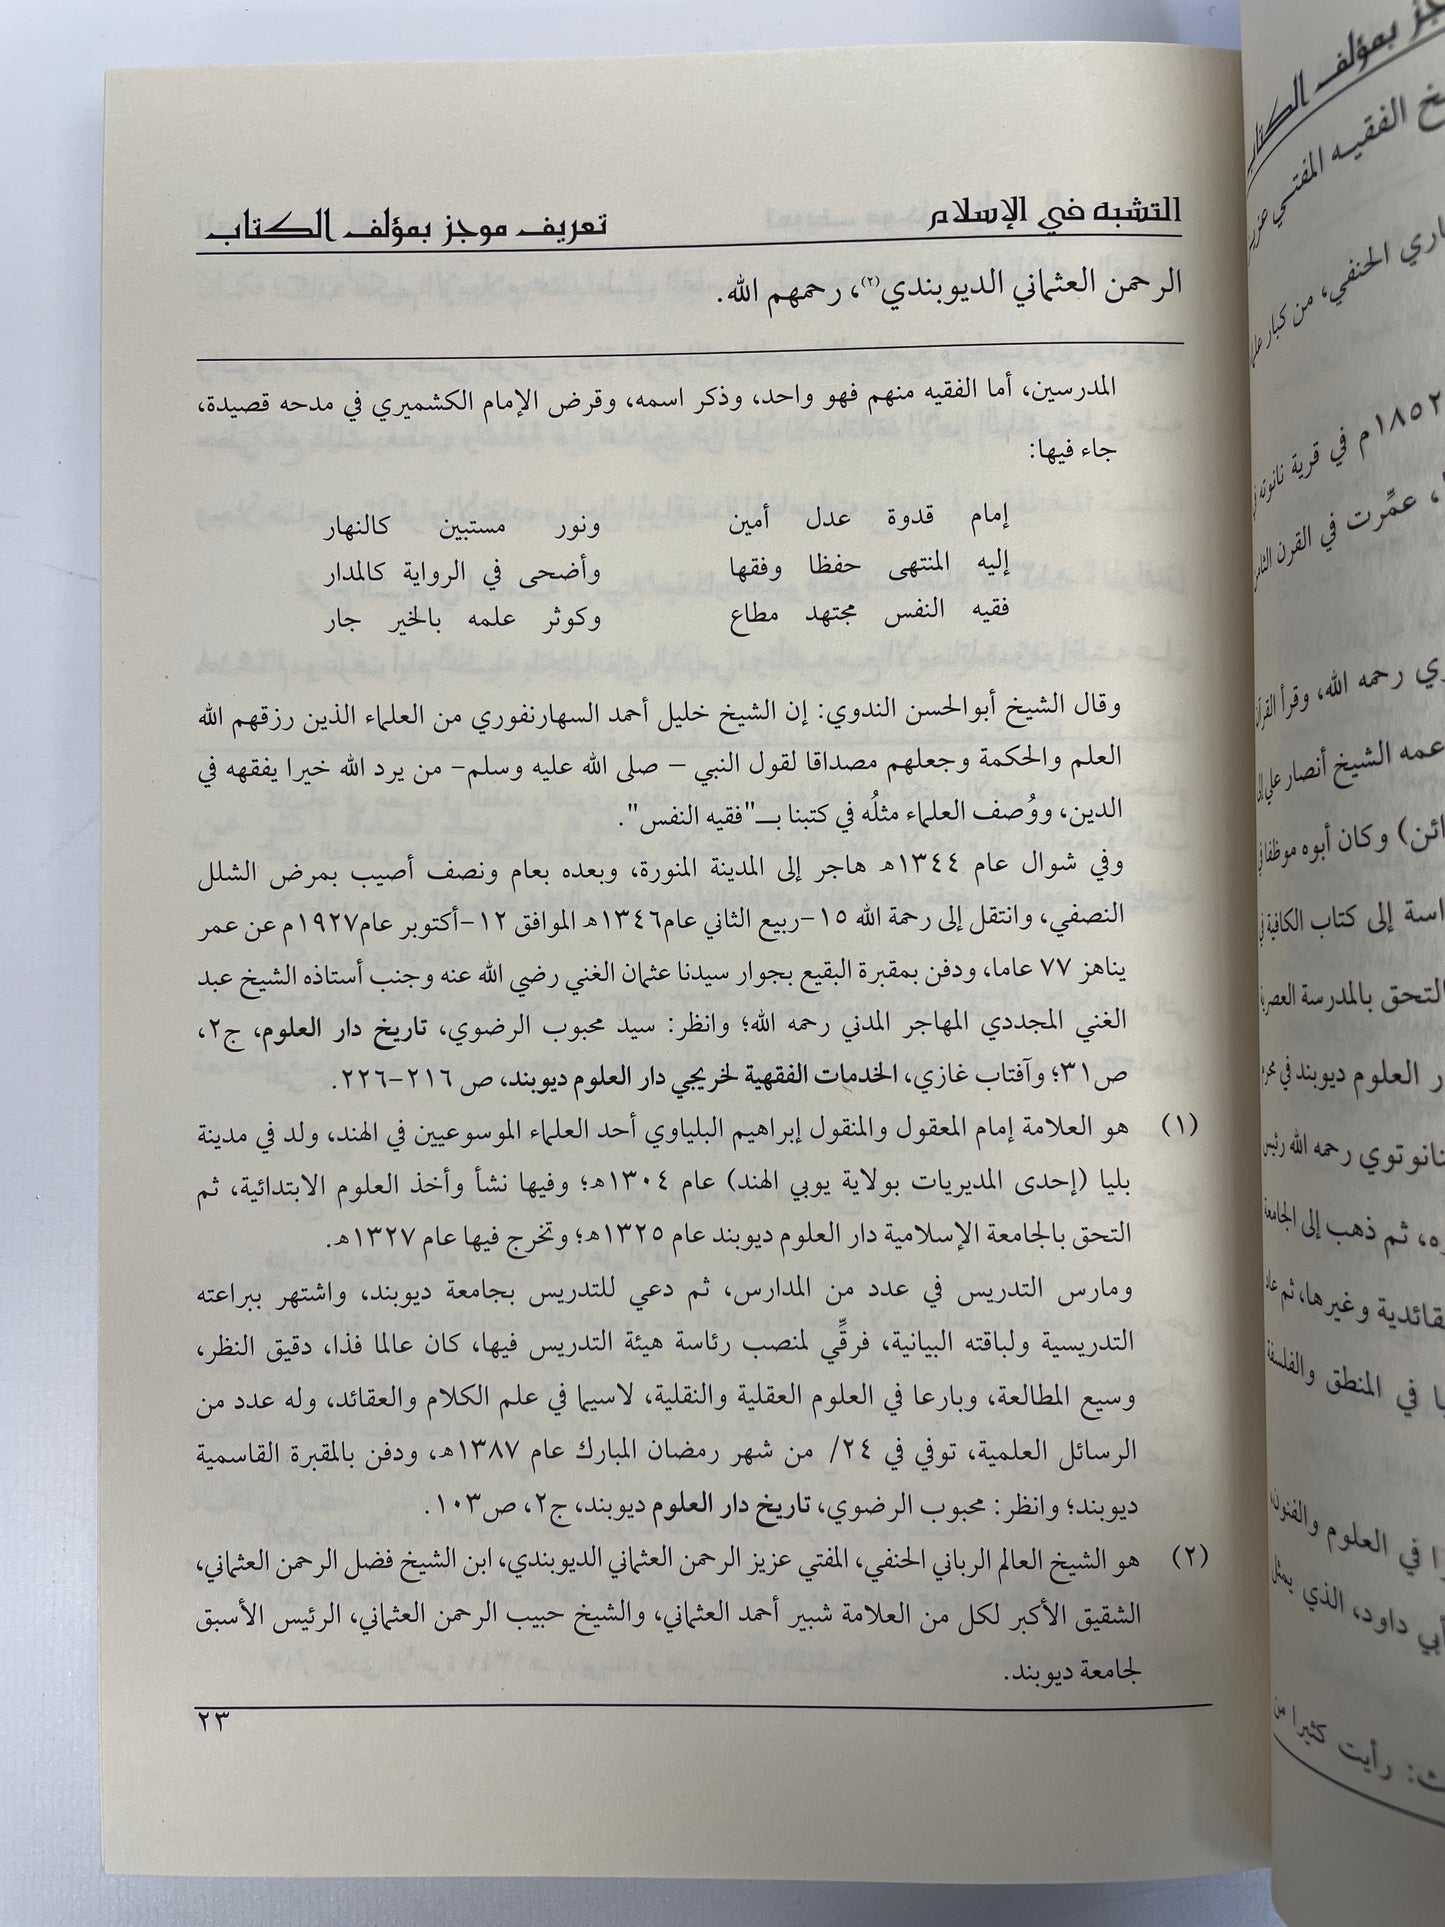 التشبه في الإسلام
تعريف موجز بمؤلف الكتاب
الرحمن العثماني الديوبندي(٢)، رحمهم الله.
المدرسين، أما الفقيه منهم فهو واحد، وذكر اسمه، وقرض الإمام الكشميري في مدحه قصيدة،
جاء فيها:
إمام قدوة عدل أمين ونور مستبين كالنهار
إليه المنتهى حفظا وفقها وأضحى في الرواية كالمدار
فقيه النفس مجتهد مطاع وكوثر علمه بالخير جار
وقال الشيخ أبوالحسن الندوي: إن الشيخ خليل أحمد السهارنفوري من العلماء الذين رزقهم الله
العلم والحكمة وجعلهم مصداقا لقول النبي – صلى الله عليه وسلم– من يرد الله خيرا يفقهه في
الدين، ووُصف العلماء مثلُه في كتبنا بـ"فقيه النفس".
وفي شوال عام ١٣٤٤هـ هاجر إلى المدينة المنورة، وبعده بعام ونصف أصيب بمرض الشلل
النصفي، وانتقل إلى رحمة الله ١٥–ربيع الثاني عام١٣٤٦هـ الموافق ١٢–أكتوبر عام١٩٢٧م عن عمر
يناهز ٧٧ عاما، ودفن بمقبرة البقيع بجوار سيدنا عثمان الغني رضي الله عنه وجنب أستاذه الشيخ عبد
الغني المجددي المهاجر المدني رحمه الله؛ وانظر: سيد محبوب الرضوي، تاريخ دار العلوم، ج٢،
ص٣١؛ وآفتاب غازي، الخدمات الفقهية لخريجي دار العلوم ديوبند، ص ٢١٦–٢٢٦.
(١) هو العلامة إمام المعقول والمنقول إبراهيم البلياوي أحد العلماء الموسوعيين في الهند، ولد في مدينة
بليا (إحدى المديريات بولاية يوبي الهند) عام ١٣٠٤هـ؛ وفيها نشأ وأخذ العلوم الابتدائية، ثم
التحق بالجامعة الإسلامية دار العلوم ديوبند عام ١٣٢٥هـ؛ وتخرج فيها عام ١٣٢٧هـ.
ومارس التدريس في عدد من المدارس، ثم دعي للتدريس بجامعة ديوبند، واشتهر ببراعته
التدريسية ولباقته البيانية، فرقِّي لمنصب رئاسة هيئة التدريس فيها، كان عالما فذا، دقيق النظر،
وسيع المطالعة، وبارعا في العلوم العقلية والنقلية، لاسيما في علم الكلام والعقائد، وله عدد من
الرسائل العلمية، توفي في ٢٤/ من شهر رمضان المبارك عام ١٣٨٧هـ، ودفن بالمقبرة القاسمية
ديوبند؛ وانظر: محبوب الرضوي، تاريخ دار العلوم ديوبند، ج٢، ص١٠٣.
(٢) هو الشيخ العالم الرباني الحنفي، المفتي عزيز الرحمن العثماني الديوبندي، ابن الشيخ فضل الرحمن العثماني،
الشقيق الأكبر لكل من العلامة شبير أحمد العثماني، والشيخ حبيب الرحمن العثماني، الرئيس الأسبق
لجامعة ديوبند.
٢٣
بمؤلف الكتاب
الفقيه المفتي
الحنفي، من كبار
١٨٥٢م في قرية نانوته
عمِّرت في القرن
رحمه الله، وقرأ القرآن
عمه الشيخ أنصار علي
وكان أبوه موظفا
إلى كتاب الكافية
التحق بالمدرسة
العلوم ديوبند في
رحمه الله
ثم ذهب إلى
وغيرها، ثم
في المنطق والفلسفة
في العلوم والفنون
داود، الذي يمثل
رأيت كثيرا من